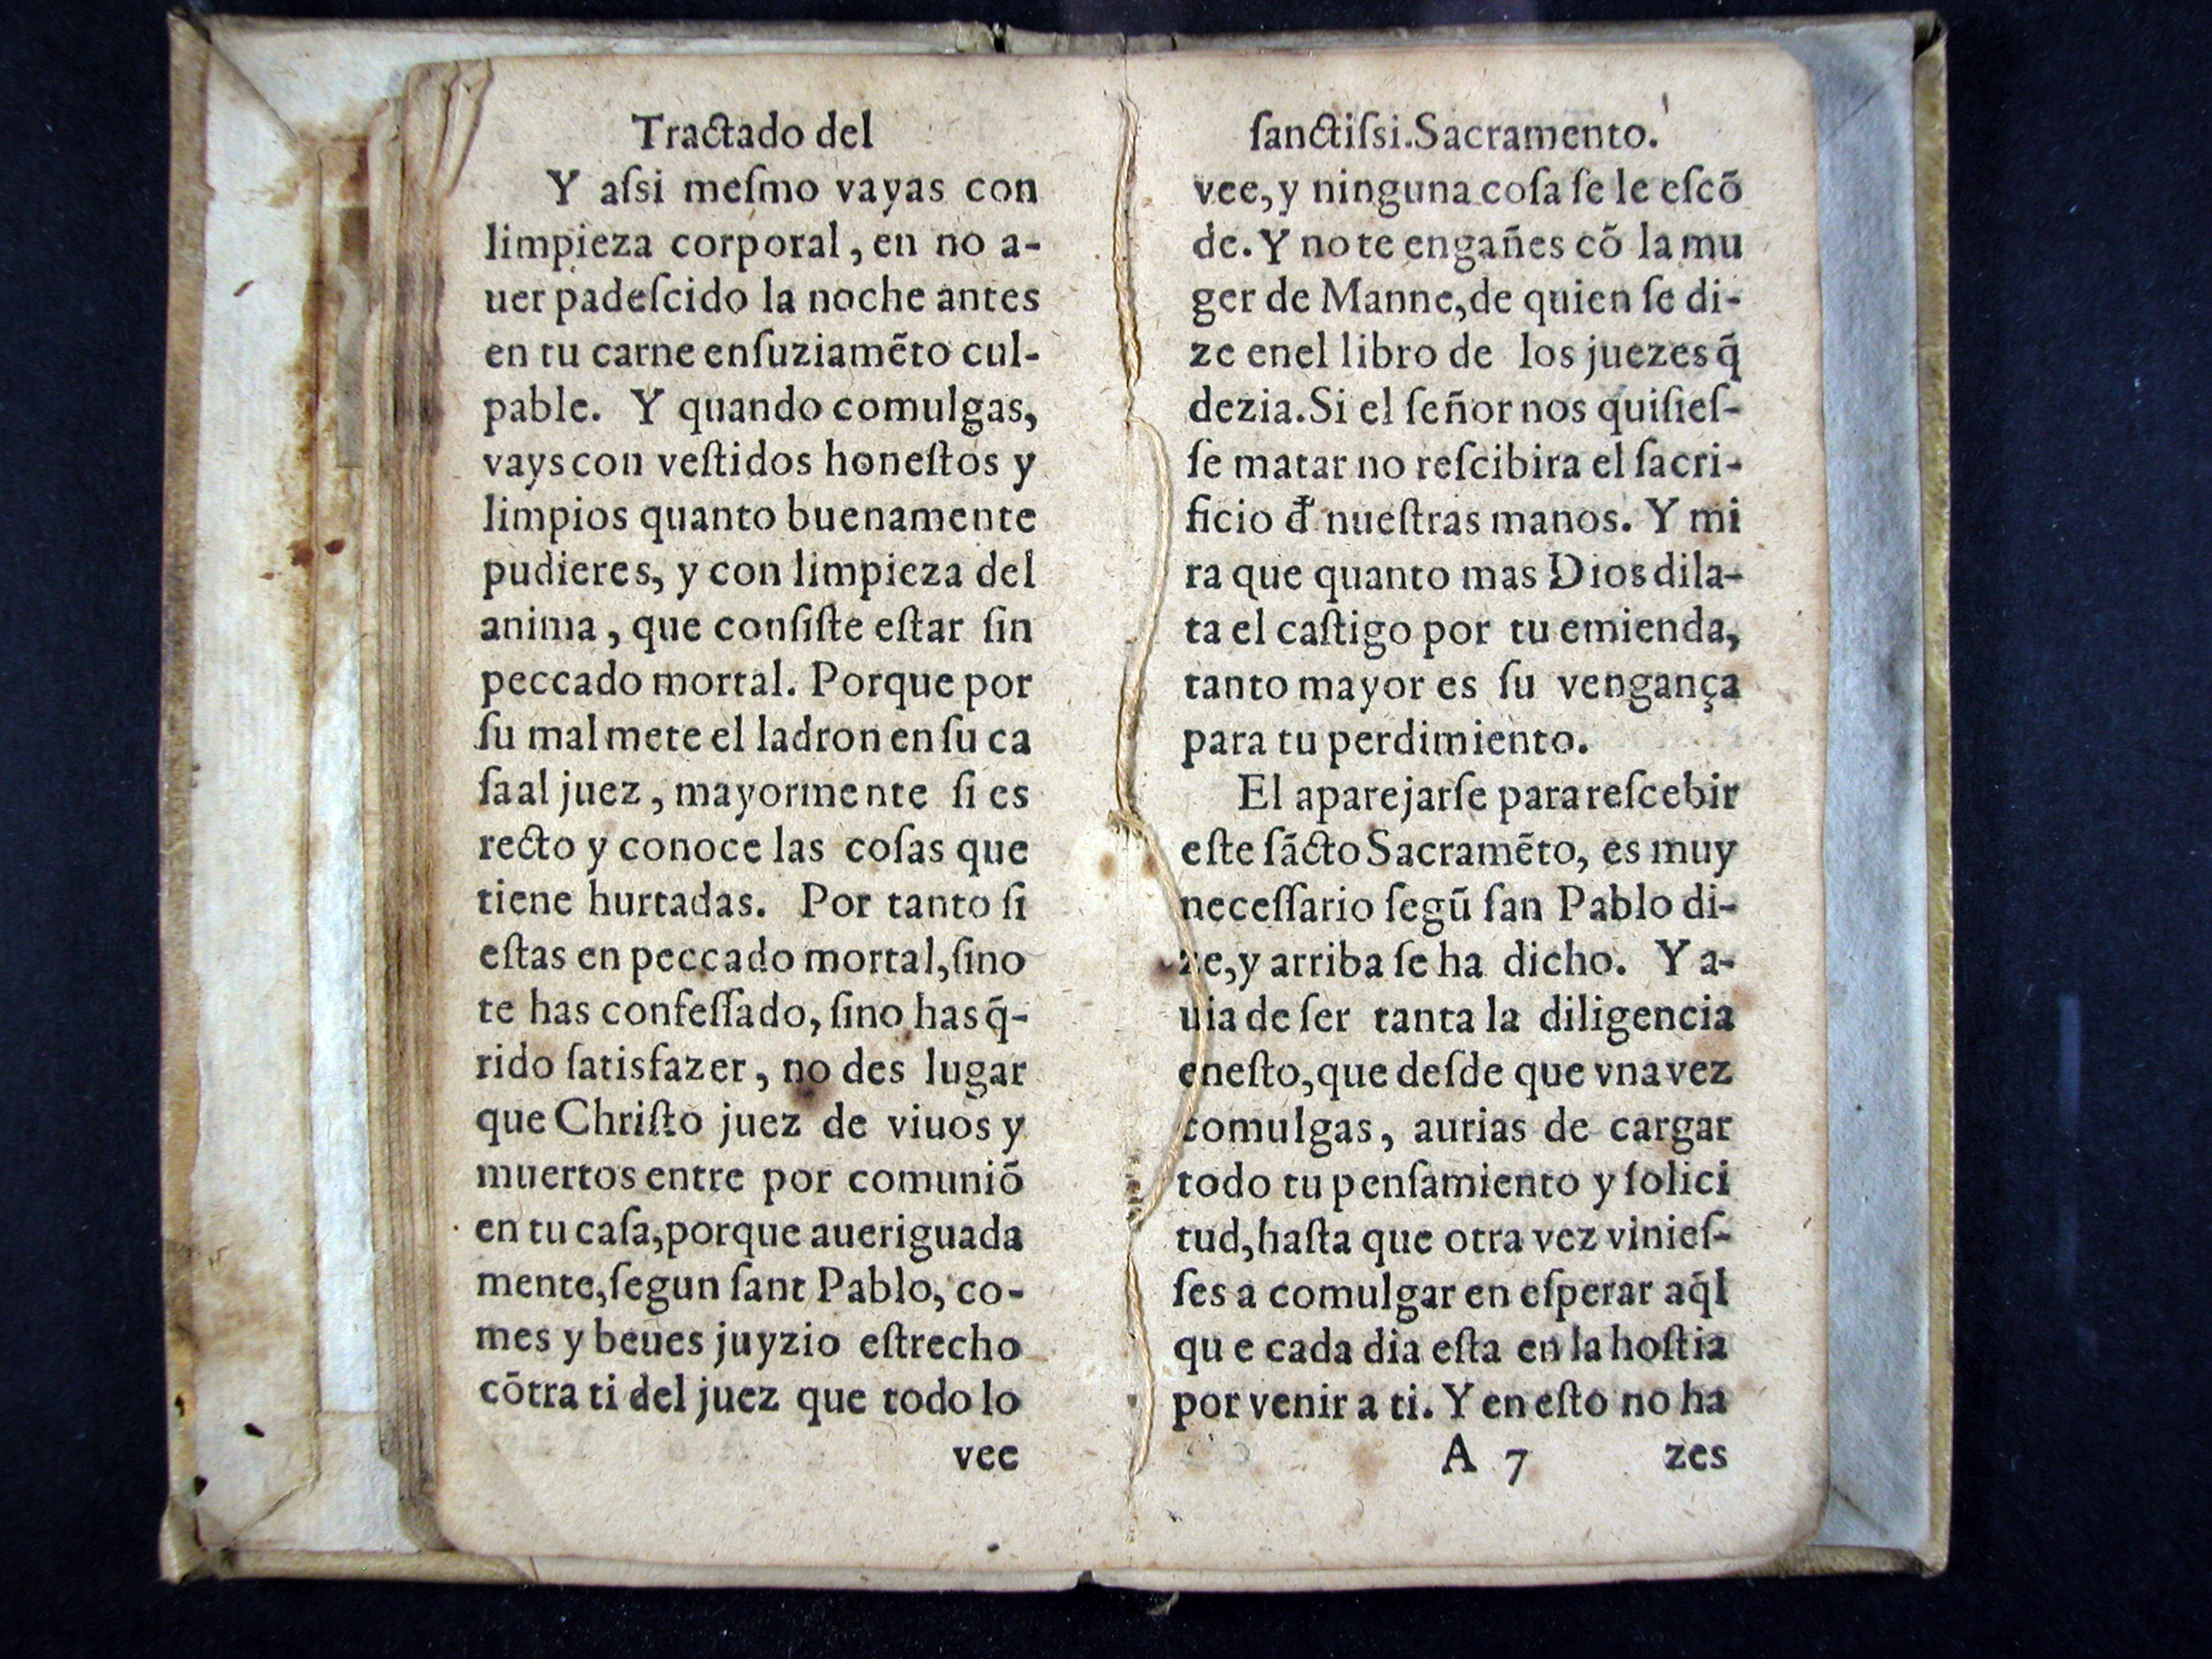 Tractado del
Y aſsi meſmo vayas con
limpieza corporal, en no a-
uer padeſcido la noche antes
en tu carne enſuziamẽto cul-
pable. Y quando comulgas,
vays con veſtidos honeſtos y
limpios quanto buenamente
pudieres, y con limpieza del
anima, que conſiſte eſtar ſin
peccado mortal. Porque por
ſu mal mete el ladron en ſu ca
ſa al juez, mayormente ſi es
recto y conoce las coſas que
tiene hurtadas. Por tanto ſi
eſtas en peccado mortal, ſino
te has confeſſado, ſino has q̃-
rido ſatisfazer, no des lugar
que Chriſto juez de viuos y
muertos entre por comuniõ
en tu caſa, porque aueriguada
mente, ſegun ſant Pablo, co-
mes y beues juyzio eſtrecho
cõtra ti del juez que todo lo
vee
ſanctiſsi. Sacramento.
vee, y ninguna coſa ſe le eſcõ
de. Y no te engañes cõ la mu
ger de Manne, de quien ſe di-
ze enel libro de los juezes q̃
dezia. Si el ſeñor nos quiſieſ-
ſe matar no reſcibira el ſacri-
ficio đ nueſtras manos. Y mi
ra que quanto mas Dios dila-
ta el caſtigo por tu emienda,
tanto mayor es ſu vengança
para tu perdimiento.
El aparejarſe para reſcebir
eſte ſãcto Sacramẽto, es muy
neceſſario ſegũ ſan Pablo di-
ze, y arriba ſe ha dicho. Y a-
uia de ſer tanta la diligencia
eneſto, que deſde que vna vez
comulgas, aurias de cargar
todo tu penſamiento y ſolici
tud, haſta que otra vez vinieſ-
ſes a comulgar en eſperar aq̃l
qu e cada dia eſta en la hoſtia
por venir a ti. Y en eſto no ha
A 7 zes